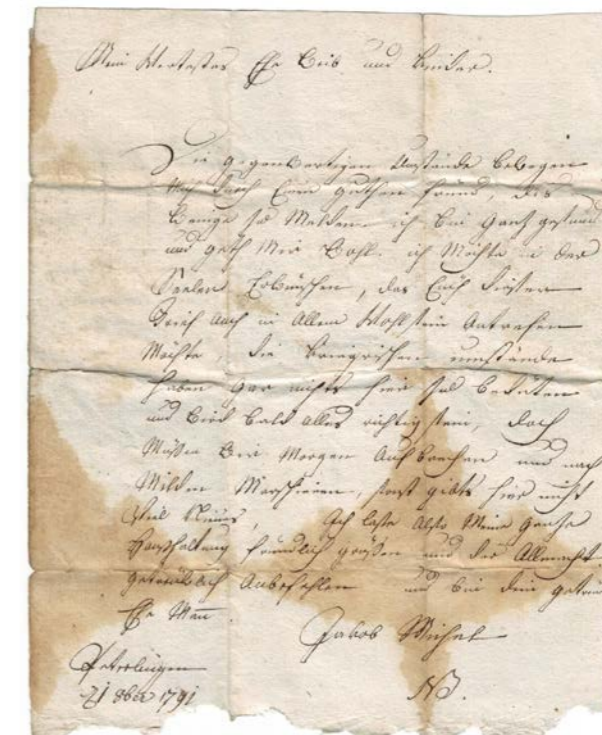 Mein Wertestes Ehe Weib und Kinder.
Die gegenwertigen Umstände bewegen
Mich durch Einen guthen freund, dis
Wenige zu Melden ich bin Gantz gesund
und geth Mir Wohl. ich Möchte in der
Seelen Erwünschen, das Euch dieser
Brieff auch in Allem Wohlsein Antrefen
Möchte, die kriegrischen umstände
haben gar nichts hier zu bedeuten
und Wird bald alles richtig sein, doch
Müssen Wir Morgen Aufbrechen und nach
Milden Marschieren, sonst gibts hier nicht
Viel Neues, Ich lasse Also Meine Gantze
Haushaltung freundlich grüssen und der Allmacht
getreülich Anbefehlen und bin dein getreü
Ehe Man
Jakob Michel
Peterlingen
8ber 1791
NB.